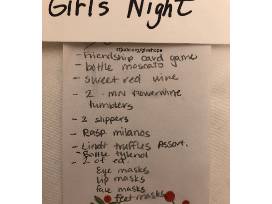 Girls Night
- friendship card game
- bottle moscato
- sweet red wine
- 2 mini flowerwine
tumblers
- 2 slippers
- Rasp milanos
- Lindt truffles Assort.
- Bottle tylenol
- 2 of ea.
Eye masks
Lip masks
face masks
feet masks